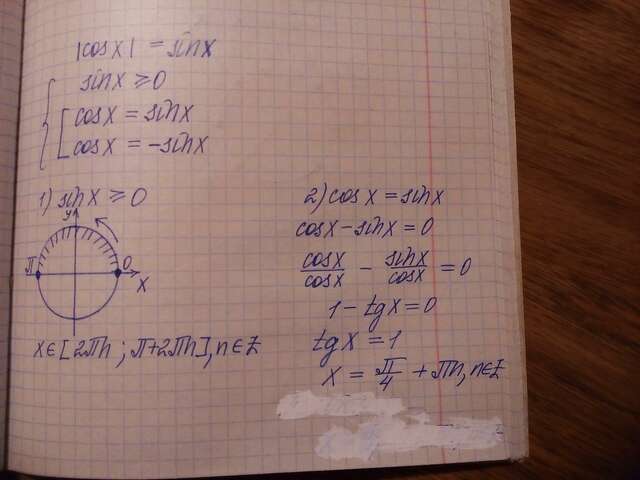 |cosx| = sinx
sinx ≥ 0
cosx = sinx
cosx = -sinx
1) sinx ≥ 0
y
π
0
x
x∈[2πn; π+2πn], n∈Z
2) cosx = sinx
cosx - sinx = 0
cosx/cosx - sinx/cosx = 0
1 - tgx = 0
tgx = 1
x = π/4 + πn, n∈Z